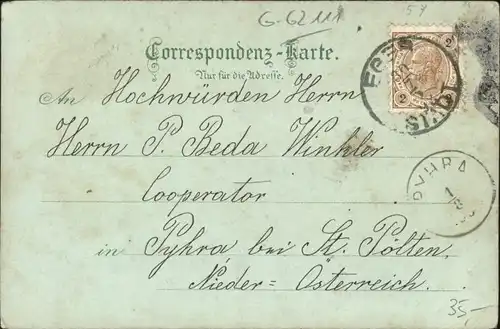 G-62111
57
Correspondenz-Karte.
Nur für die Adresse.
2 2
An Hochwürden Herrn
STADT
Herrn P. Beda Winkler
PYHRA
Cooperator
1
8
in Pyhra bei St. Pölten,
Nieder-Österreich.
35,-